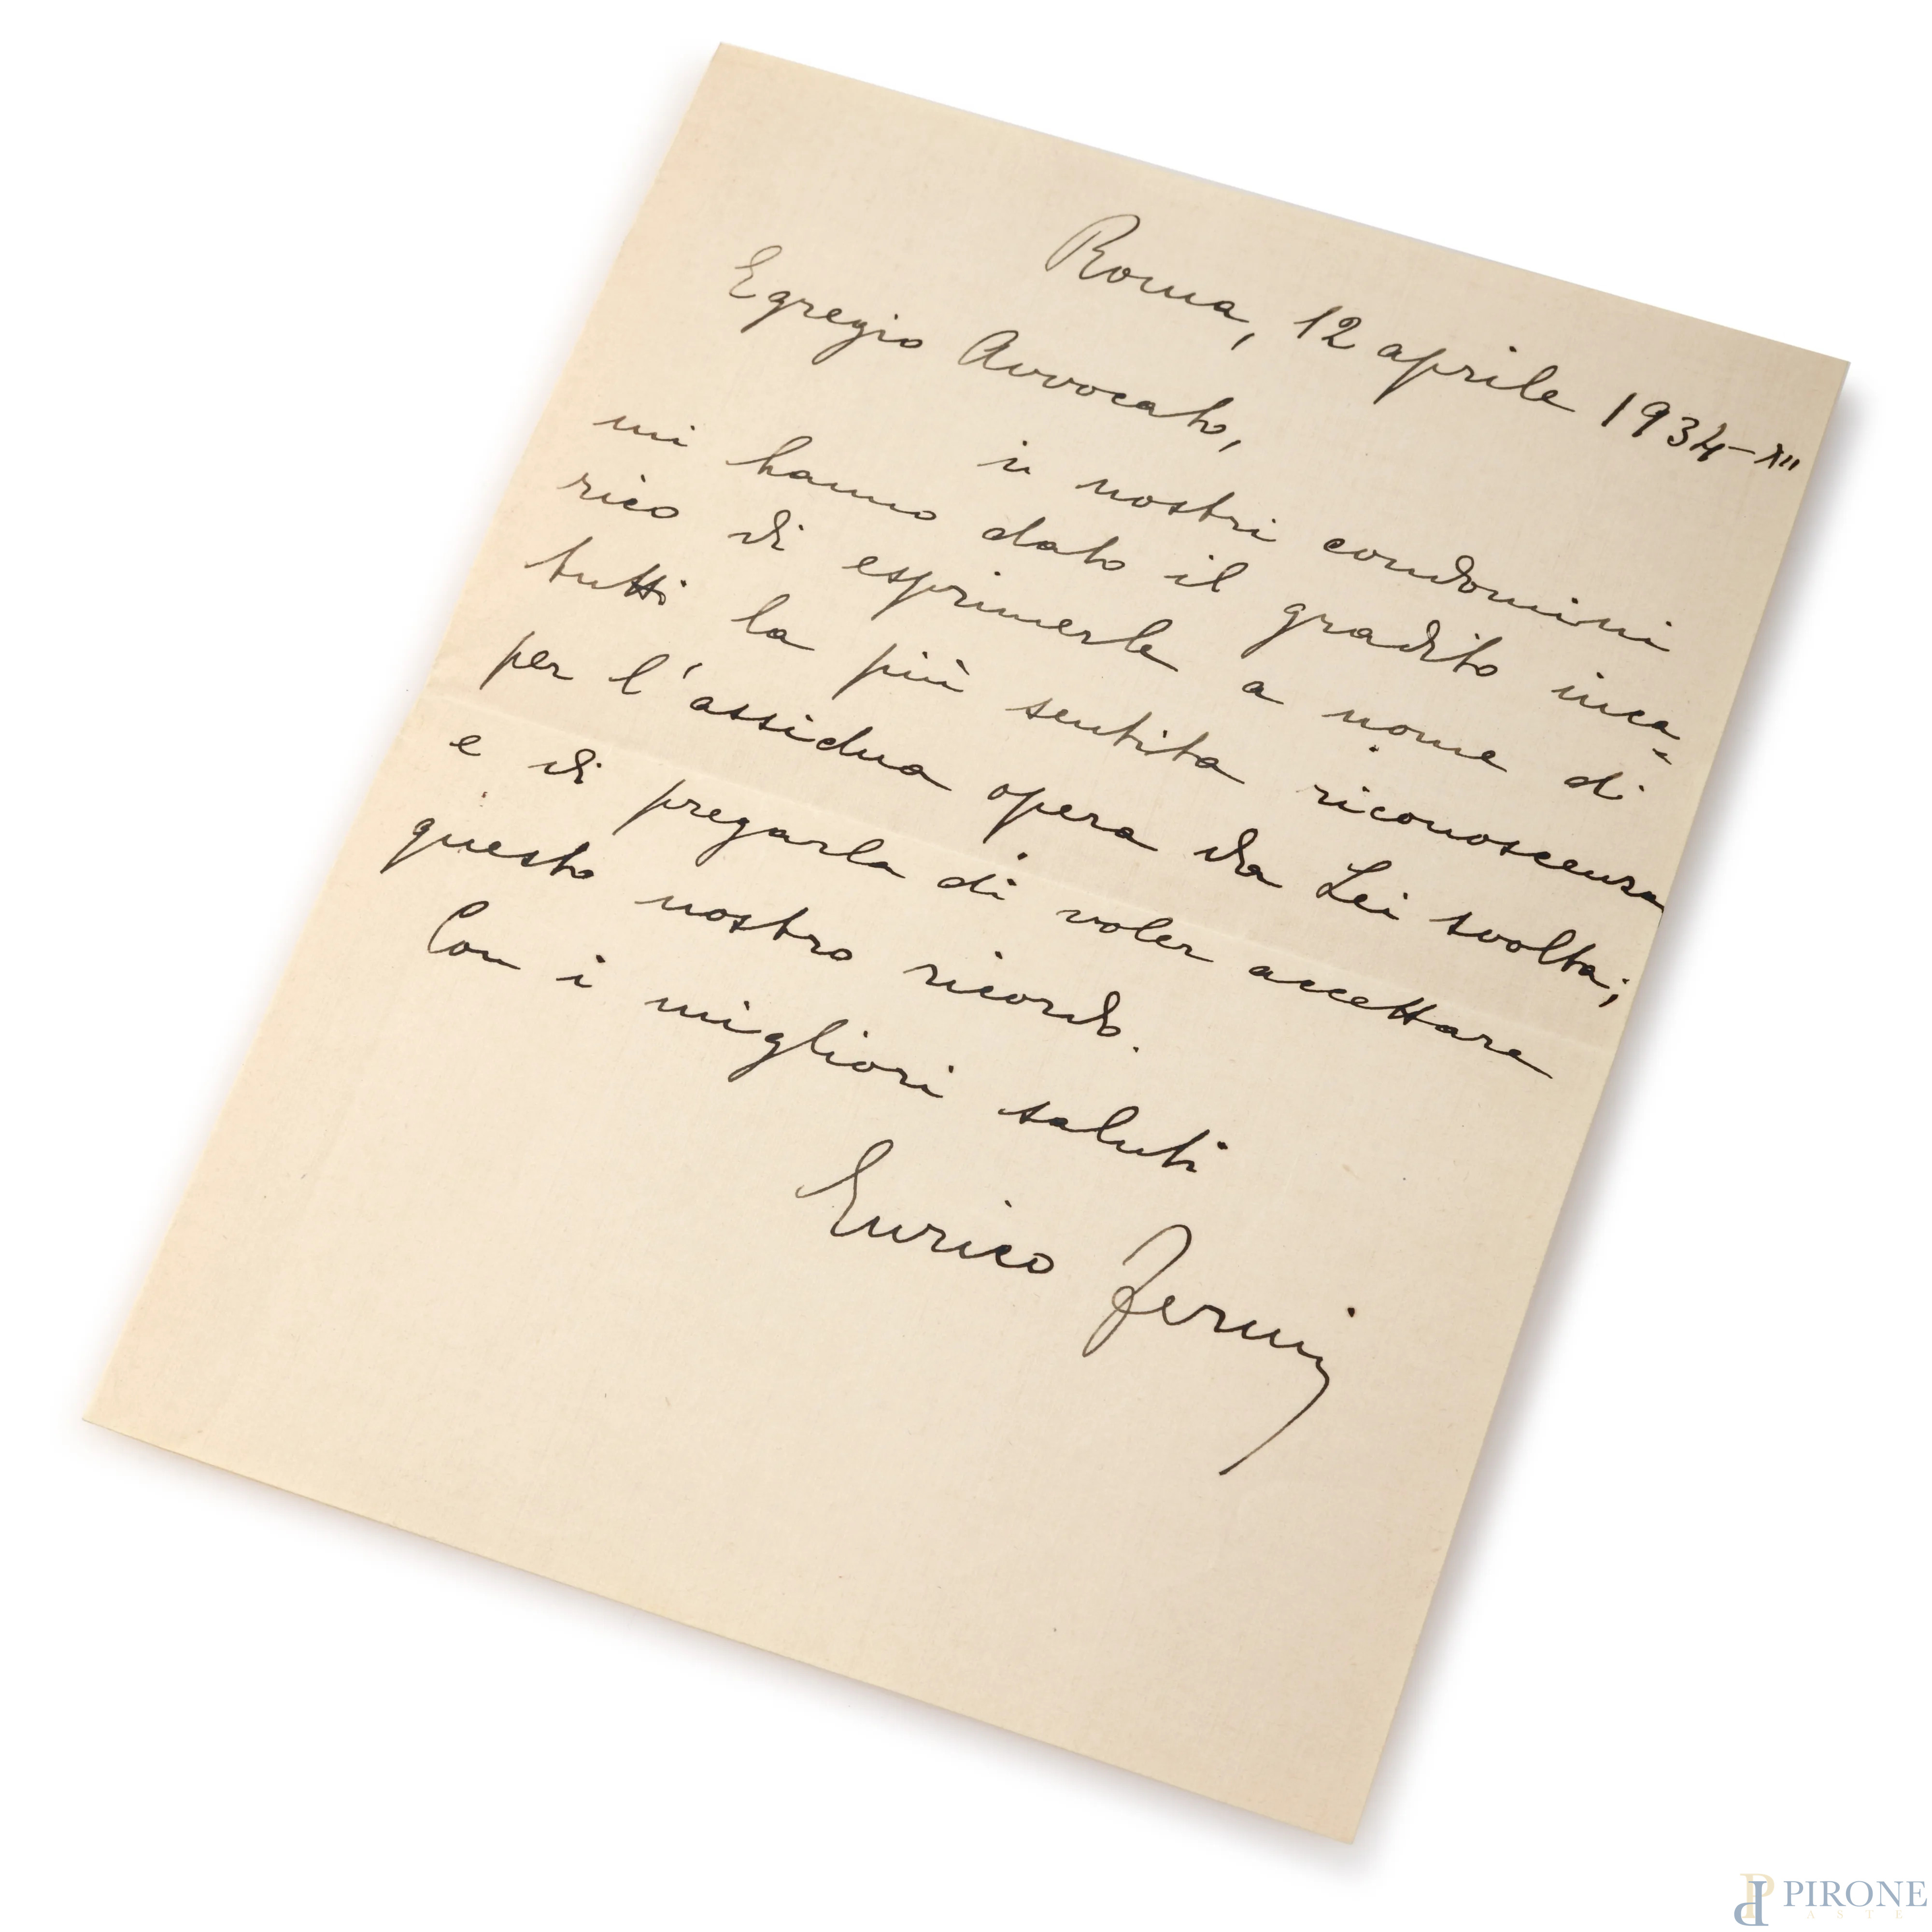 Roma, 12 aprile 1934-XII
Egregio Avvocato,
i nostri condomini
mi hanno dato il gradito inca-
rico di esprimerle a nome di
tutti la più sentita riconoscenza
per l'assidua opera da Lei svolta;
e di pregarla di voler accettare
questo nostro ricordo.
Con i migliori saluti
Enrico Fermi
PIRONE
ASTE